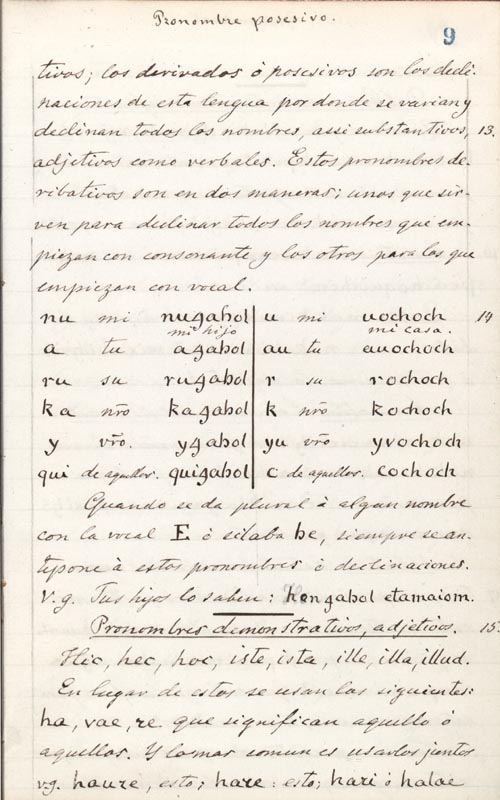 Pronombre posesivo.
9
tivos; los derivados ò posesivos son los decli-
naciones de esta lengua por donde se varian y
declinan todos los nombres, assi substantivos, 13.
adjetivos como verbales. Estos pronombres de-
ribativos son en dos maneras; unos que sir-
ven para declinar todos los nombres que em-
piezan con consonante, y los otros para los que
empiezan con vocal.
nu mi nugahol u mi uochoch 14
mi hijo mi casa.
a tu agahol au tu auochoch
ru su rugahol r su rochoch
ka nrõ kagahol k nrõ kochoch
y vrõ. ygahol yu vrõ yvochoch
qui de aquellos. quigahol c de aquellos. cochoch
Quando se da plural à algun nombre
con la vocal E ò silaba he, siempre se an-
tepone à estos pronombres ò declinaciones.
V. g. Tus hijos lo saben: gahol etamaiom.
Pronombres demonstrativos, adjetivos. 15.
Hic, hec, hoc, iste, ista, ille, illa, illud.
En lugar de estos se usan los siguientes:
ha, vae, re que significan aquello ò
aquellos. Y lo mas comun es usarlos juntos
v.g. haure, esto; hare: esto; hari ò halae